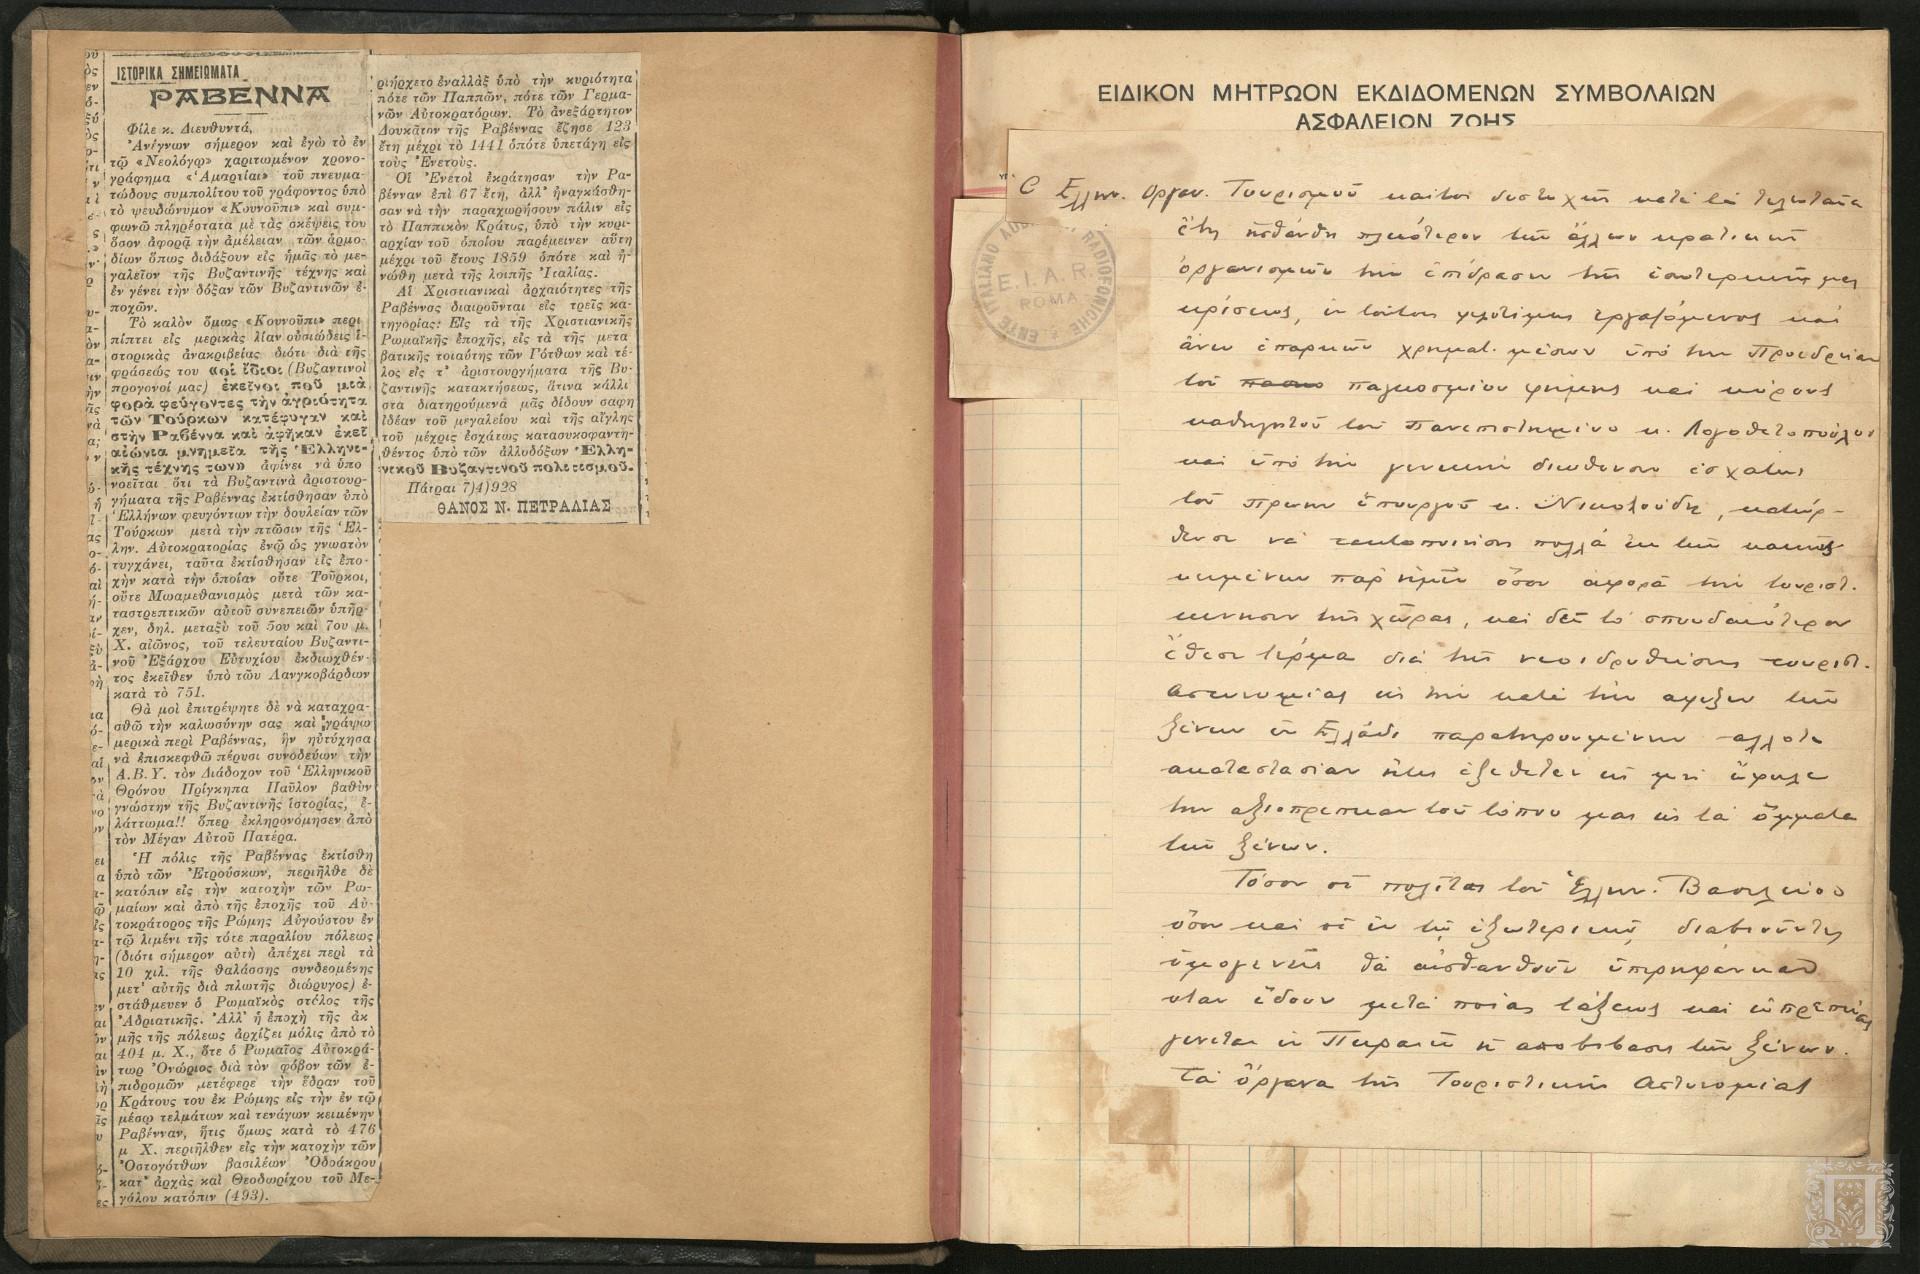 ΙΣΤΟΡΙΚΑ ΣΗΜΕΙΩΜΑΤΑ
ΡΑΒΕΝΝΑ
Φίλε κ. Διευθυντά,
Ἀνέγνων σήμερον καὶ ἐγὼ τὸ ἐν
τῷ «Νεολόγῳ» χαριτωμένον χρονο-
γράφημα «Ἁμαρτίαι» τοῦ πνευμα-
τώδους συμπολίτου τοῦ γράφοντος ὑπὸ
τὸ ψευδώνυμον «Κουνοῦπι» καὶ συμ-
φωνῶ πληρέστατα μὲ τὰς σκέψεις του
ὅσον ἀφορᾷ τὴν ἀμέλειαν τῶν ἁρμο-
δίων ὅπως διδάξουν εἰς ἡμᾶς τὸ με-
γαλεῖον τῆς Βυζαντινῆς τέχνης καὶ
ἐν γένει τὴν δόξαν τῶν Βυζαντινῶν ἐ-
ποχῶν.
Τὸ καλὸν ὅμως «Κουνοῦπι» περι
πίπτει εἰς μερικὰς λίαν οὐσιώδεις ἱ-
στορικὰς ἀνακριβείας διότι διὰ τῆς
φράσεώς του «οἱ ἴδιοι (Βυζαντινοὶ
προγονοί μας) ἐκεῖνοι ποῦ μιὰ
φορὰ φεύγοντες τὴν ἀγριότητα
τῶν Τούρκων κατέφυγαν καὶ
στὴν Ραβέννα καὶ ἀφῆκαν ἐκεῖ
αἰώνια μνημεῖα τῆς Ἑλληνι-
κῆς τέχνης των» ἀφίνει νὰ ὑπο
νοεῖται ὅτι τὰ Βυζαντινὰ ἀριστουρ-
γήματα τῆς Ραβέννας ἐκτίσθησαν ὑπὸ
Ἑλλήνων φευγόντων τὴν δουλείαν τῶν
Τούρκων μετὰ τὴν πτῶσιν τῆς Ἑλ-
λην. Αὐτοκρατορίας ἐνῷ ὡς γνωστὸν
τυγχάνει, ταῦτα ἐκτίσθησαν εἰς ἐπο-
χὴν κατὰ τὴν ὁποίαν οὔτε Τοῦρκοι,
οὔτε Μωαμεθανισμὸς μετὰ τῶν κα-
ταστρεπτικῶν αὐτοῦ συνεπειῶν ὑπῆρ-
χεν, δηλ. μεταξὺ τοῦ 5ου καὶ 7ου μ.
Χ. αἰῶνος, τοῦ τελευταίου Βυζαντι-
νοῦ Ἐξάρχου Εὐτυχίου ἐκδιωχθέν-
τος ἐκεῖθεν ὑπὸ τῶν Λανγκοβάρδων
κατὰ τὸ 751.
Θὰ μοὶ ἐπιτρέψητε δὲ νὰ καταχρα-
σθῶ τὴν καλωσύνην σας καὶ γράψω
μερικὰ περὶ Ραβέννας, ἣν ηὐτύχησα
νὰ ἐπισκεφθῶ πέρυσι συνοδεύων τὴν
Α.Β.Υ. τὸν Διάδοχον τοῦ Ἑλληνικοῦ
Θρόνου Πρίγκηπα Παῦλον βαθὺν
γνώστην τῆς Βυζαντινῆς ἱστορίας, ἐ-
λάττωμα!! ὅπερ ἐκληρονόμησεν ἀπὸ
τὸν Μέγαν Αὐτοῦ Πατέρα.
Ἡ πόλις τῆς Ραβέννας ἐκτίσθη
ὑπὸ τῶν Ἐτρούσκων, περιῆλθε δὲ
κατόπιν εἰς τὴν κατοχὴν τῶν Ρω-
μαίων καὶ ἀπὸ τῆς ἐποχῆς τοῦ Αὐ-
τοκράτορος τῆς Ρώμης Αὐγούστου ἐν
τῷ λιμένι τῆς τότε παραλίου πόλεως
(διότι σήμερον αὐτὴ ἀπέχει περὶ τὰ
10 χιλ. τῆς θαλάσσης συνδεομένης
μετ' αὐτῆς διὰ πλωτῆς διώρυγος) ἐ-
στάθμευεν ὁ Ρωμαϊκὸς στόλος τῆς
Ἀδριατικῆς. Ἀλλ' ἡ ἐποχὴ τῆς ἀκ
μῆς τῆς πόλεως ἀρχίζει μόλις ἀπὸ τὸ
404 μ. Χ., ὅτε ὁ Ρωμαῖος Αὐτοκρά-
τωρ Ὁνώριος διὰ τὸν φόβον τῶν ἐ-
πιδρομῶν μετέφερε τὴν ἕδραν τοῦ
Κράτους του ἐκ Ρώμης εἰς τὴν ἐν τῷ
μέσῳ τελμάτων καὶ τενάγων κειμένην
Ραβένναν, ἥτις ὅμως κατὰ τὸ 476
μ Χ. περιῆλθεν εἰς τὴν κατοχὴν τῶν
Ὀστογότθων βασιλέων Ὀδοάκρου
κατ' ἀρχὰς καὶ Θεοδωρίχου τοῦ Με-
γάλου κατόπιν (493).
ριήρχετο ἐναλλὰξ ὑπὸ τὴν κυριότητα
πότε τῶν Παππῶν, πότε τῶν Γερμα-
νῶν Αὐτοκρατόρων. Τὸ ἀνεξάρτητον
Δουκᾶτον τῆς Ραβέννας ἔζησε 123
ἔτη μέχρι τὸ 1441 ὁπότε ὑπετάγη εἰς
τοὺς Ἐνετούς.
Οἱ Ἐνετοὶ ἐκράτησαν τὴν Ρα-
βένναν ἐπὶ 67 ἔτη, ἀλλ' ἠναγκάσθη-
σαν νὰ τὴν παραχωρήσουν πάλιν εἰς
τὸ Παππικὸν Κράτος, ὑπὸ τὴν κυρι-
αρχίαν τοῦ ὁποίου παρέμεινεν αὕτη
μέχρι τοῦ ἔτους 1859 ὁπότε καὶ ἡ-
νώθη μετὰ τῆς λοιπῆς Ἰταλίας.
Αἱ Χριστιανικαὶ ἀρχαιότητες τῆς
Ραβέννας διαιροῦνται εἰς τρεῖς κα-
τηγορίας: Εἰς τὰ τῆς Χριστιανικῆς
Ρωμαϊκῆς ἐποχῆς, εἰς τὰ τῆς μετα
βατικῆς τοιαύτης τῶν Γότθων καὶ τέ-
λος εἰς τ' ἀριστουργήματα τῆς Βυ-
ζαντινῆς κατακτήσεως, ἅτινα κάλλι
στα διατηρούμενα μᾶς δίδουν σαφῆ
ἰδέαν τοῦ μεγαλείου καὶ τῆς αἴγλης
τοῦ μέχρις ἐσχάτως κατασυκοφαντη-
θέντος ὑπὸ τῶν ἀλλοδόξων Ἑλλη-
νικοῦ Βυζαντινοῦ πολιτισμοῦ.
Πάτραι 7)4)928
ΘΑΝΟΣ Ν. ΠΕΤΡΑΛΙΑΣ
ΕΙΔΙΚΟΝ ΜΗΤΡΩΟΝ ΕΚΔΙΔΟΜΕΝΩΝ ΣΥΜΒΟΛΑΙΩΝ
ΑΣΦΑΛΕΙΩΝ ΖΩΗΣ
ENTE ITALIANO AUDIZIONI RADIOFONICHE
E.I.A.R.
ROMA
Ὁ Ἑλλην. Οργαν. Τουρισμοῦ καίτοι δυστυχῶς κατὰ τὰ τελευταῖα
ἔτη ᾐσθάνθη πλειότερον τῶν ἄλλων κρατικῶν
ὀργανισμῶν τὴν ἐπίδρασιν τῆς ἐσωτερικῆς μας
κρίσεως, ἐν τούτοις φιλοτίμως ἐργαζόμενος καὶ
ἄνευ ἐπαρκῶν χρηματ. μέσων ὑπὸ τὴν Προεδρείαν
τοῦ παγκοσμίου φήμης καὶ κύρους
καθηγητοῦ τοῦ Πανεπιστημίου κ. Λογοθετοπούλου
καὶ ὑπὸ τὴν γενικὴν διεύθυνσιν ἐσχάτως
τοῦ πρώην ὑπουργοῦ κ. Νικολούδη, κατώρ-
θωσε νὰ τακτοποιήσῃ πολλὰ ἐκ τῶν κακῶς
κειμένων παρ' ἡμῖν ὅσον ἀφορᾶ τὴν τουριστ.
κίνησιν τῆς χώρας, καὶ δὲ τὸ σπουδαιότερον
ἔθεσε τέρμα διὰ τῆς νεοιδρυθείσης τουριστ.
Αστυνομίας εἰς τὴν κατὰ τὴν αφιξιν τῶν
ξένων ἐν Ἑλλάδι παρατηρουμένην αλλοτε
ακαταστασίαν ἥτις ἐξέθετεν εἰς μὴ
τὴν αξιοπρέπειαν τοῦ τόπου μας εἰς τὰ ὄμματα
τῶν ξένων.
Τόσον οἱ πολῖται τοῦ Ἑλλην. Βασιλείου
ὅσον καὶ οἱ ἐν τῷ ἐξωτερικῷ διαβιοῦντες
ὁμογενεῖς θὰ αἰσθανθοῦν ὑπερηφάνειαν
οταν ἴδουν μετὰ ποίας τάξεως καὶ εὐπρεπείας
γίνεται ἐν Πειραιεῖ ἡ αποβίβασις τῶν ξένων.
Τὰ ὄργανα τῆς Τουριστικῆς Αστυνομίας